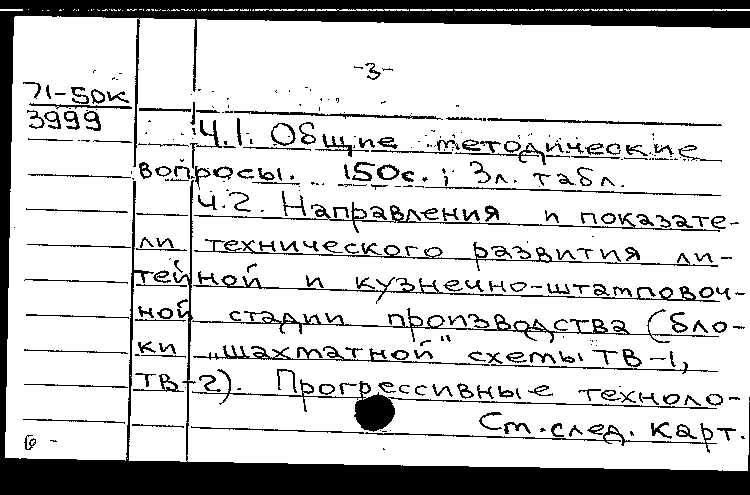 -3-
71-50к
3999
Ч.1. Общие методические
вопросы. 150с.; 3л. табл.
Ч.2. Направления и показате-
ли технического развития ли-
тейной и кузнечно-штамповоч-
ной стадии производства (бло-
ки „шахматной" схемы ТВ-1,
ТВ-2). Прогрессивные техноло-
См. след. карт.